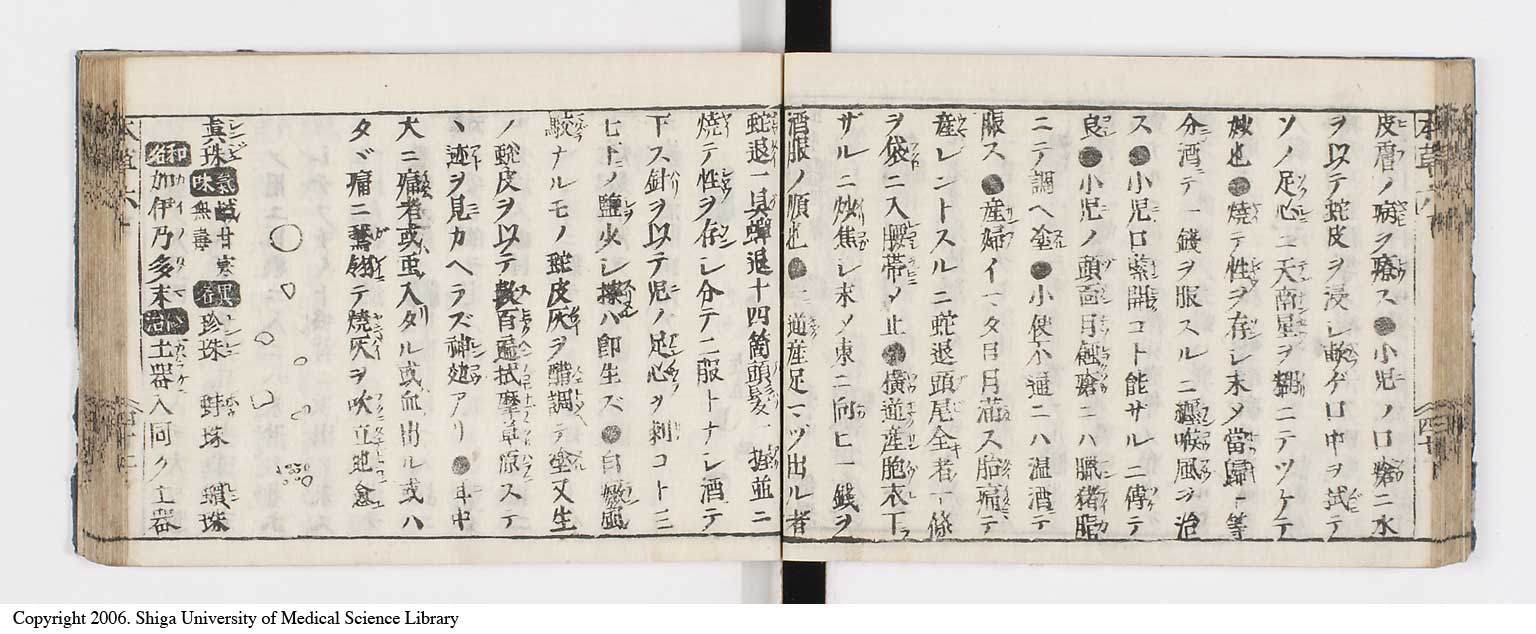 皮膚ノ病ヲ療ス●小児ノ口瘡ニ水
ヲ以テ蛇皮ヲ浸シ軟ゲ口中ヲ拭テ
ソノ足心ニ天南星ヲ糊ニテツケテ
妙也●焼テ性ヲ存シ末メ當歸ト等
分酒テ一錢ヲ服スルニ纒喉風ヲ治
ス●小児口緊開コト能サルニ傅テ
良●小児ノ頭面月蝕瘡ニハ臘猪脂
ニテ調ヘ塗●小便不通ニハ温酒テ
服ス●産婦イマタ日月満ス胎痛テ
産レントスルニ蛇退頭尾全者一條
ヲ袋ニ入腰帯メ止●横逆産胞衣下
ザルニ炒焦シ末メ東ニ向ヒ一錢ヲ
酒服ノ順也●逆産足マヅ出ル者
蛇退一具蝉退十四箇頭髪一握並ニ
焼テ性ヲ存シ分テ二服トナシ酒テ
下ス針ヲ以テ児ノ足心ヲ刺コト三
七下ノ鹽少シ擦ハ即生ズ●白癜風
駮ナルモノ蛇皮灰ヲ醋調テ塗又生
ノ蛇皮ヲ以テ数百遍拭摩草原ステ
ヽ迹ヲ見カヘラズ神効アリ●耳中
大ニ痛者或虫入タル或血出ル或ハ
タヾ痛ニ焼灰ヲ吹立地愈
真珠 氣鹹甘寒 味無毒 異名珍珠 蚌珠 璸珠
和名加伊乃多末 土器入同ク土器
本草六
四十
Copyright 2006. Shiga University of Medical Science Library